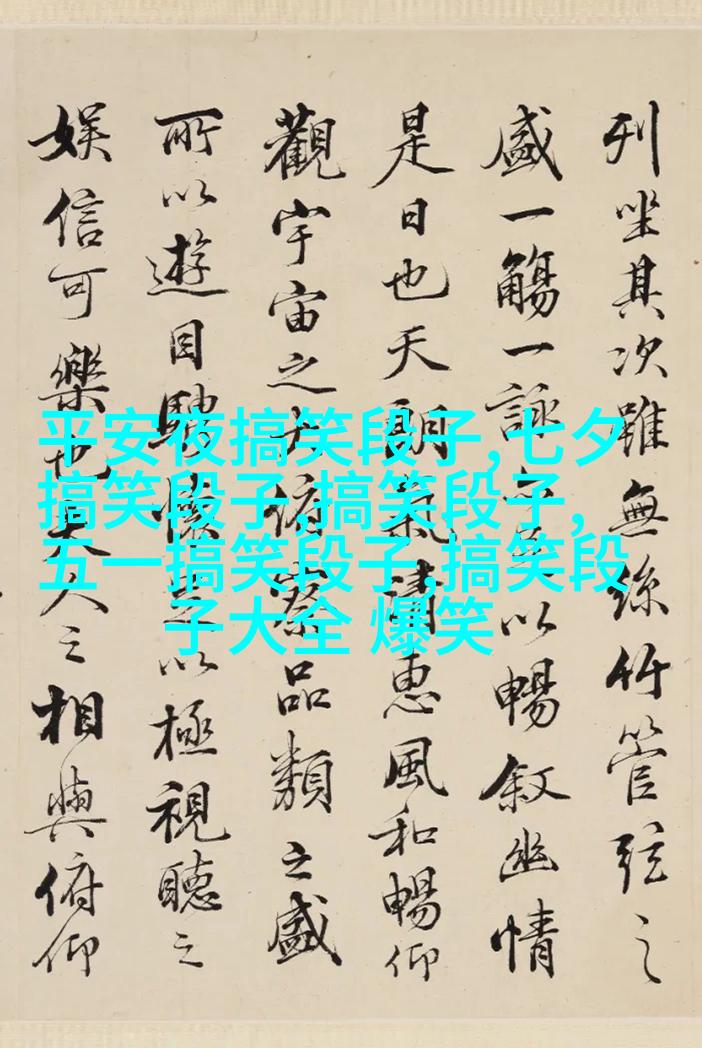 列坐其次雖無絲竹管弦之
盛一觴一詠亦足以暢叙幽情
是日也天朗氣清惠風和暢仰
觀宇宙之大俯察品類之盛
所以遊目騁懷足以極視聽之
娱信可樂也夫人之相與俯仰
平安夜搞笑段子,七夕
搞笑段子,搞笑段子,
五一搞笑段子,搞笑段
子大全 爆笑